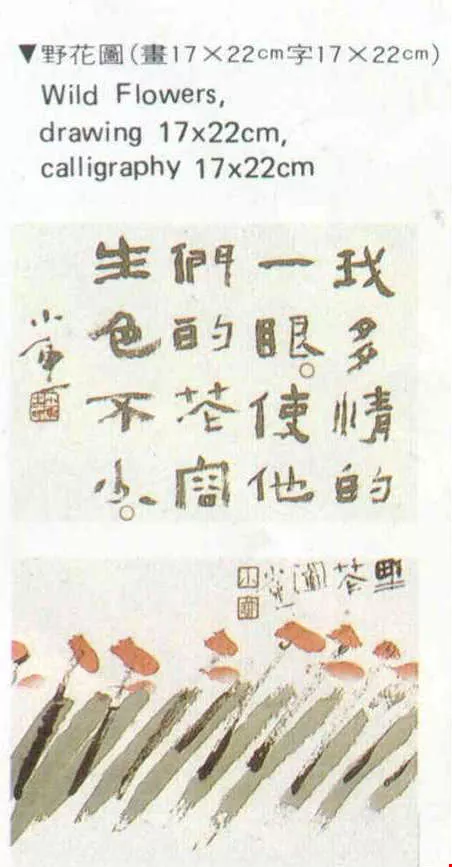 ▼野花圖(畫17×22cm字17×22cm)
Wild Flowers,
drawing 17x22cm,
calligraphy 17x22cm
我多情的
一眼。使他
們的花容
生色不少。
野花圖